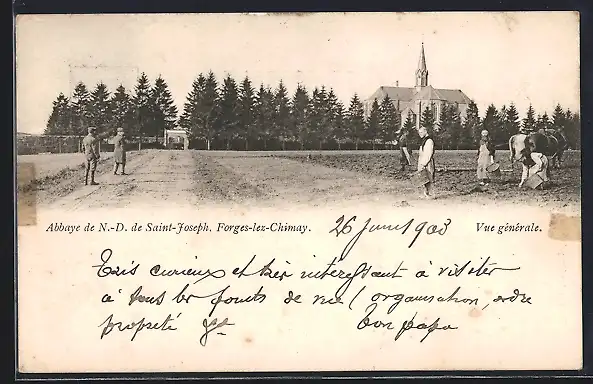 Abbaye de N.-D. de Saint-Joseph. Forges-lez-Chimay. 26 Juin 1903 Vue générale.
Très curieux et très intéressant à visiter
à tous les points de vue (organisation, ordre
propreté &c. Ton papa